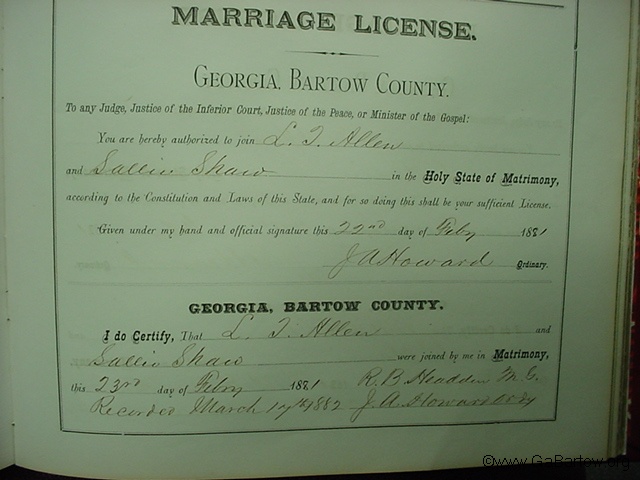 MARRIAGE LICENSE.
GEORGIA, BARTOW COUNTY.
To any Judge, Justice of the Inferior Court, Justice of the Peace, or Minister of the Gospel:
You are hereby authorized to join L. T. Allen
and Sallie Shaw in the Holy State of Matrimony,
according to the Constitution and Laws of this State, and for so doing this shall be your sufficient License.
Given under my hand and official signature this 22nd day of Feby 1881
J A Howard Ordinary.
GEORGIA, BARTOW COUNTY.
I do Certify, That L. T. Allen and
Sallie Shaw were joined by me in Matrimony,
this 23rd day of Feby 1881 R. B. Headden M. G.
Recorded March 17th 1882 J. A. Howard Ordy
©www.GaBartow.org